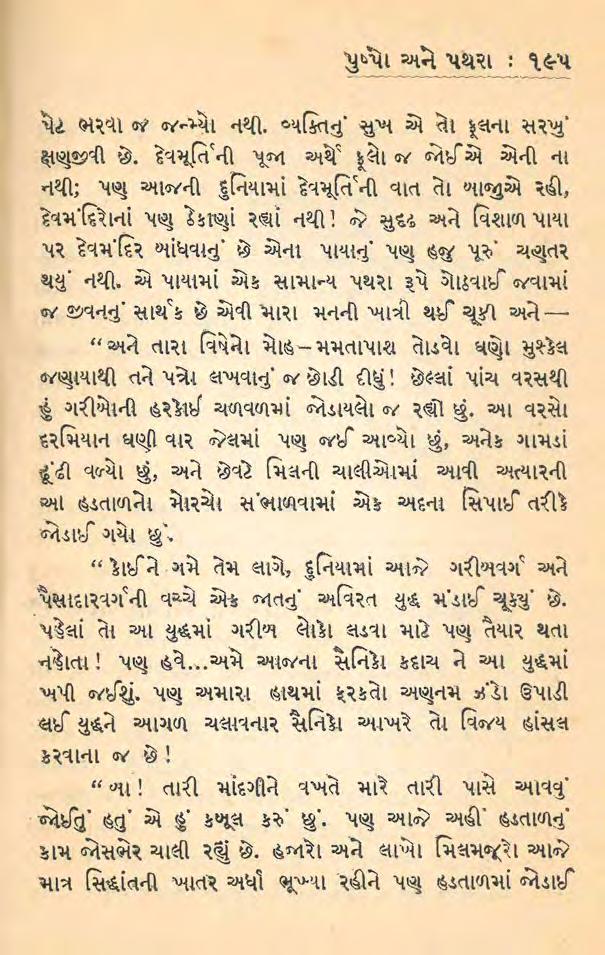 પુષ્પો અને પથરા : ૧૯૫
પેટ ભરવા જ જન્મ્યો નથી. વ્યક્તિનું સુખ એ તો ફૂલના સરખું
ક્ષણજીવી છે. દેવમૂર્તિની પૂજા અર્થે ફૂલો જ જોઈએ એની ના
નથી; પણ આજની દુનિયામાં દેવમૂર્તિની વાત તો બાજુએ રહી,
દેવમંદિરોનાં પણ ઠેકાણાં રહ્યાં નથી! જે સુદૃઢ અને વિશાળ પાયા
પર દેવમંદિર બાંધવાનું છે એના પાયાનું પણ હજુ પૂરું ચણતર
થયું નથી. એ પાયામાં એક સામાન્ય પથરા રૂપે ગોઠવાઈ જવામાં
જ જીવનનું સાર્થક છે એવી મારા મનની ખાત્રી થઈ ચૂકી અને—
“અને તારા વિષેનો મોહ–મમતાપાશ તોડવો ઘણો મુશ્કેલ
જણાયાથી તને પત્રો લખવાનું જ છોડી દીધું! છેલ્લાં પાંચ વરસથી
હું ગરીબોની હરકોઈ ચળવળમાં જોડાયલો જ રહ્યો છું. આ વરસો
દરમિયાન ઘણી વાર જેલમાં પણ જઈ આવ્યો છું, અનેક ગામડાં
ઢૂંઢી વળ્યો છું, અને છેવટે મિલની ચાલીઓમાં આવી અત્યારની
આ હડતાળનો મોરચો સંભાળવામાં એક અદના સિપાઈ તરીકે
જોડાઈ ગયો છું.
“કોઈને ગમે તેમ લાગે, દુનિયામાં આજે ગરીબવર્ગ અને
પૈસાદારવર્ગની વચ્ચે એક જાતનું અવિરત યુદ્ધ મંડાઈ ચૂક્યું છે.
પહેલાં તો આ યુદ્ધમાં ગરીબ લોકો લડવા માટે પણ તૈયાર થતા
નહોતા! પણ હવે...અમે આજના સૈનિકો કદાચ ને આ યુદ્ધમાં
ખપી જઈશું. પણ અમારા હાથમાં ફરકતો અણનમ ઝંડો ઉપાડી
લઈ યુદ્ધને આગળ ચલાવનાર સૈનિકો આખરે તો વિજય હાંસલ
કરવાના જ છે!
“બા! તારી માંદગીને વખતે મારે તારી પાસે આવવું
જોઈતું હતું એ હું કબૂલ કરું છું. પણ આજે અહીં હડતાળનું
કામ જોસભેર ચાલી રહ્યું છે. હજારો અને લાખો મિલમજૂરો આજે
માત્ર સિદ્ધાંતની ખાતર અર્ધાં ભૂખ્યા રહીને પણ હડતાળમાં જોડાઈ